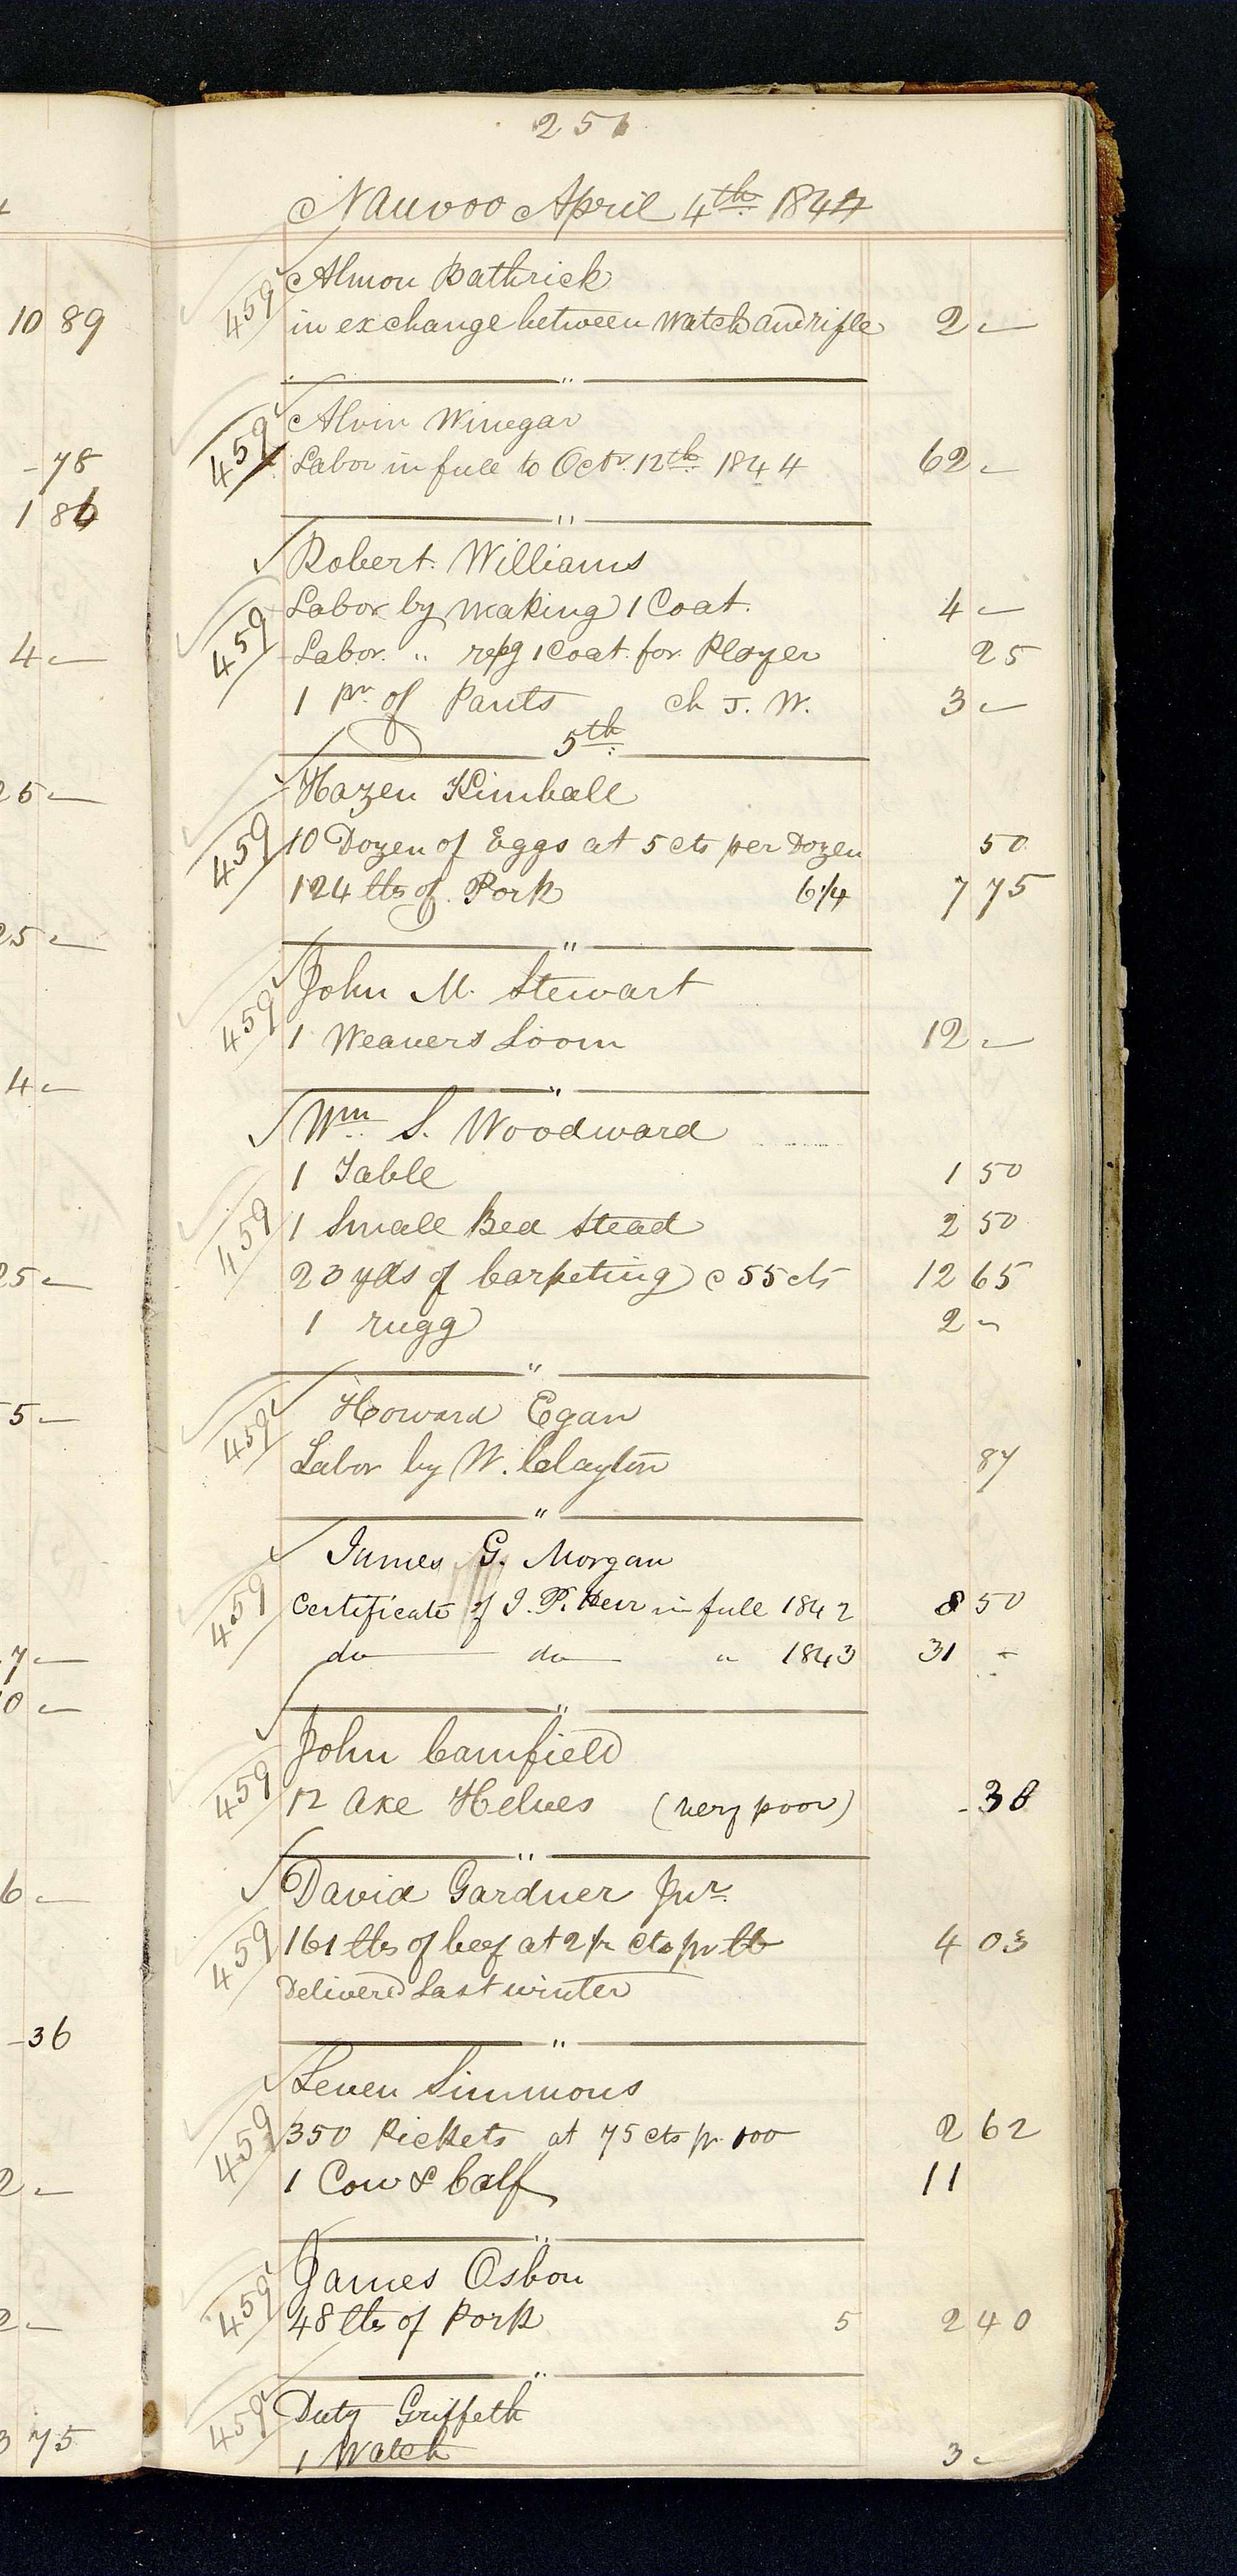 251
Nauvoo April 4th 1844
459 Almon Bathrick
in exchange between Watch and rifle 2 -
"
459 Alvin Winegar
Labor in full to Octr. 12th 1844 62 -
"
Robert Williams
459 Labor by making 1 Coat. 4 -
Labor. " repg 1 Coat for Player 25
1 pr. of Pants ch J. W. 3 -
5th
Hazen Kimball
459 10 Dozen of Eggs at 5 cts per Dozen 50
124 lbs of Pork 6 1/4 7 75
"
John M. Stewart
459 1 Weavers Loom 12 -
"
Wm S. Woodward
1 Table 1 50
459 1 Small Bed Stead 2 50
23 yds of Carpeting @ 55 cts 12 65
1 rugg 2 -
"
459 Howard Egan
Labor by W. Clayton 87
"
James G. Morgan
459 Certificate of I. P. in full 1842 8 50
do do " 1843 31 -
"
John Camfield
459 12 Axe Helves (very poor) - 38
"
David Gardner Jur.
459 161 lbs of beef at 2 1/2 cts pr lb 4 03
Delivered Last winter
"
Leven Simmons
459 350 Pickets at 75 cts pr 100 2 62
1 Cow & Calf 11
"
James Osbon
459 48 lbs of Pork 5 2 40
"
459 Duty Griffeth
1 Watch 3 -
10 89
- 78
1 86
4 -
25 -
25 -
4 -
25 -
5 -
7 -
0 -
6 -
- 36
2 -
2 -
3 75